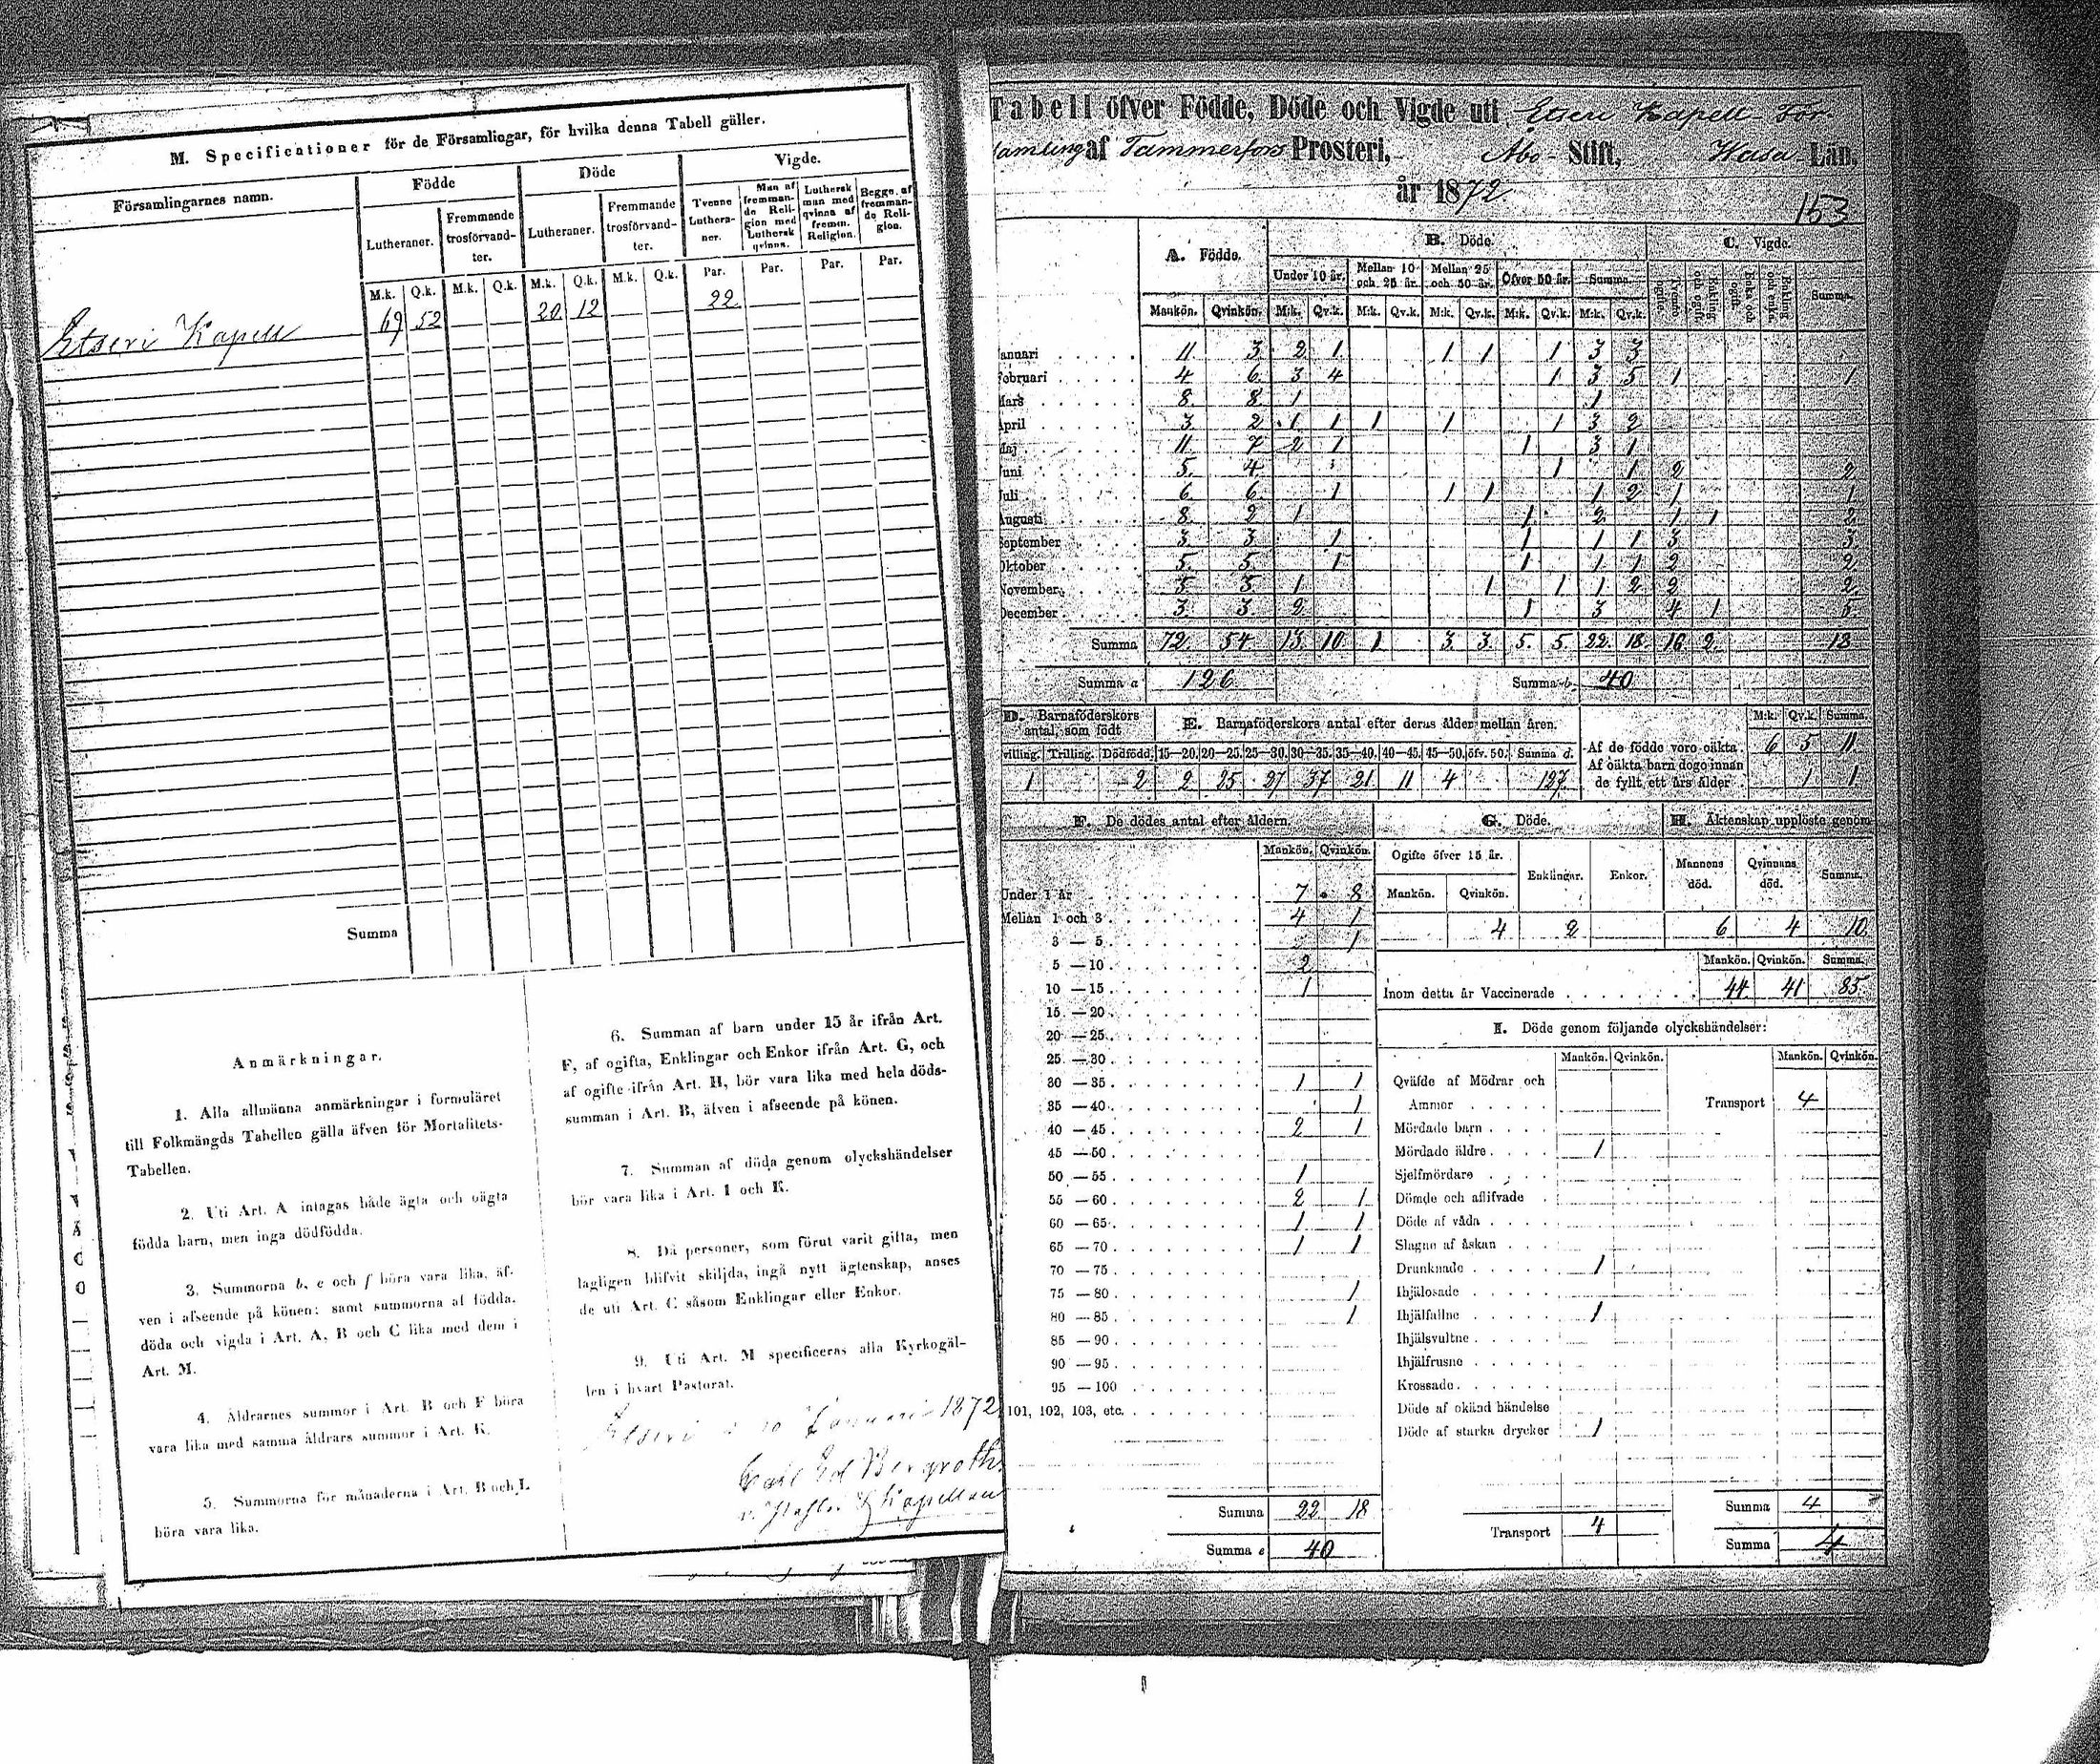 M. Specificationer för de Församlingar, för hvilka denna Tabell gäller.
Församlingarnes namn. Födde Döde Vigde.
Lutheraner. Fremmande trosförvandter. Lutheraner. Fremmande trosförvandter. Tvenne Lutheraner. Man af fremmande Religion med Luthersk qvinna. Luthersk man med qvinna af fremm. Religion. Begge af fremmande Religion.
M.k. Q.k. M.k. Q.k. M.k. Q.k. M.k. Q.k. Par. Par. Par. Par.
Etseri Kapell 69 52 20 12 22
Summa
Anmärkningar.
1. Alla allmänna anmärkningar i formuläret
till Folkmängds Tabellen gälla äfven för Mortalitets-
Tabellen.
2. Uti Art. A intagas både ägta och oägta
födda barn, men inga dödfödda.
3. Summorna b, e och f böra vara lika, äf-
ven i afseende på könen; samt summorna af födda,
döda och vigda i Art. A, B och C lika med dem i
Art. M.
4. Åldrarnes summor i Art. B och F böra
vara lika med samma åldrars summor i Art. K.
5. Summorna för månaderna i Art. B och L
böra vara lika.
6. Summan af barn under 15 år ifrån Art.
F, af ogifta, Enklingar och Enkor ifrån Art. G, och
af ogifte ifrån Art. H, bör vara lika med hela döds-
summan i Art. B, äfven i afseende på könen.
7. Summan af döda genom olyckshändelser
bör vara lika i Art. I och K.
8. Då personer, som förut varit gifta, men
lagligen blifvit skiljda, ingå nytt ägtenskap, anses
de uti Art. C såsom Enklingar eller Enkor.
9. Uti Art. M specificeras alla Kyrkogäl-
len i hvart Pastorat.
Etseri Januari 1872
Carl Ed Bergroth
Kapellan
Tabell öfver Födde, Döde och Vigde uti Etseri Kapell-För-
samling af Tammerfors Prosteri, Åbo Stift, Wasa Län,
år 1872
153
A. Födde. B. Döde. C. Vigde.
Under 10 år. Mellan 10 och 25 år. Mellan 25 och 50 år. Öfver 50 år. Summa. Summa.
Mankön. Qvinkön. M:k. Qv.k. M:k. Qv.k. M:k. Qv.k. M:k. Qv.k. M:k. Qv.k.
Januari 11 3 2 1 1 1 1 3 3
Februari 4 6 3 4 1 3 5 1 1
Mars 8 8 1 1
April 3 2 1 1 1 1 1 3 2
Maj 11 7 2 1 1 3 1
Juni 5 4 1 1 2 2
Juli 6 6 1 1 1 1 2 1 1
Augusti 8 2 1 1 2 1 1 2
September 3 3 1 1 1 1 3 3
Oktober 5 5 1 1 1 1 2 2
November 5 5 1 1 1 1 2 2 2
December 3 3 2 1 3 4 1 5
Summa 72 54 13 10 1 3 3 5 5 22 18 16 2 18
Summa a 126 Summa b. 40
D. Barnaföderskors antal, som födt E. Barnaföderskors antal efter deras ålder mellan åren. M:k. Qv.k. Summa.
Tvilling. Trilling. Dödfödd. 15—20. 20—25. 25—30. 30—35. 35—40. 40—45. 45—50. öfv. 50. Summa d.
1 2 2 25 27 37 21 11 4 127
Af de födde voro oäkta 6 5 11
Af oäkta barn dogo innan
de fyllt ett års ålder 1 1
F. De dödes antal efter åldern.
Mankön. Qvinkön.
Under 1 år 7 8
Mellan 1 och 3 4 1
3 — 5 1
5 — 10 2
10 — 15 1
15 — 20
20 — 25
25 — 30
30 — 35 1 1
35 — 40 1
40 — 45 2 1
45 — 50
50 — 55 1
55 — 60 2 1
60 — 65 1 1
65 — 70 1 1
70 — 75
75 — 80 1
80 — 85 1
85 — 90
90 — 95
95 — 100
101, 102, 103, etc.
Summa 22 18
Summa e 40
G. Döde. H. Äktenskap upplöste genom
Ogifte öfver 15 år. Enklingar. Enkor. Mannens död. Qvinnans död. Summa.
Mankön. Qvinkön.
4 2 6 4 10
Mankön. Qvinkön. Summa.
Inom detta år Vaccinerade 44 41 85
I. Döde genom följande olyckshändelser:
Mankön. Qvinkön. Mankön. Qvinkön.
Qväfde af Mödrar och
Ammor Transport 4
Mördade barn
Mördade äldre 1
Sjelfmördare
Dömde och aflifvade
Döde af våda
Slagne af åskan
Drunknade 1
Ihjälosade
Ihjälfallne 1
Ihjälsvultne
Ihjälfrusne
Krossade
Döde af okänd händelse
Döde af starka drycker 1
Summa 4
Transport 4
Summa 4